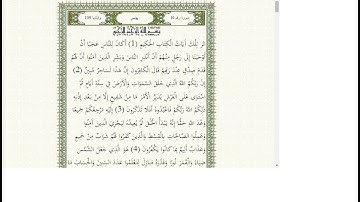 سورة رقم 10
يونس
وآياتها 109
بِسْمِ اللَّهِ الرَّحْمَنِ الرَّحِيمِ
الر تِلْكَ آيَاتُ الْكِتَابِ الْحَكِيمِ (1) أَكَانَ لِلنَّاسِ عَجَبًا أَنْ
أَوْحَيْنَا إِلَى رَجُلٍ مِنْهُمْ أَنْ أَنْذِرِ النَّاسَ وَبَشِّرِ الَّذِينَ آمَنُوا أَنَّ لَهُمْ
قَدَمَ صِدْقٍ عِنْدَ رَبِّهِمْ قَالَ الْكَافِرُونَ إِنَّ هَذَا لَسَاحِرٌ مُبِينٌ (2)
إِنَّ رَبَّكُمُ اللَّهُ الَّذِي خَلَقَ السَّمَاوَاتِ وَالْأَرْضَ فِي سِتَّةِ أَيَّامٍ ثُمَّ
اسْتَوَى عَلَى الْعَرْشِ يُدَبِّرُ الْأَمْرَ مَا مِنْ شَفِيعٍ إِلَّا مِنْ بَعْدِ إِذْنِهِ
ذَلِكُمُ اللَّهُ رَبُّكُمْ فَاعْبُدُوهُ أَفَلَا تَذَكَّرُونَ (3) إِلَيْهِ مَرْجِعُكُمْ جَمِيعًا
وَعْدَ اللَّهِ حَقًّا إِنَّهُ يَبْدَأُ الْخَلْقَ ثُمَّ يُعِيدُهُ لِيَجْزِيَ الَّذِينَ آمَنُوا
وَعَمِلُوا الصَّالِحَاتِ بِالْقِسْطِ وَالَّذِينَ كَفَرُوا لَهُمْ شَرَابٌ مِنْ حَمِيمٍ
وَعَذَابٌ أَلِيمٌ بِمَا كَانُوا يَكْفُرُونَ (4) هُوَ الَّذِي جَعَلَ الشَّمْسَ
ضِيَاءً وَالْقَمَرَ نُورًا وَقَدَّرَهُ مَنَازِلَ لِتَعْلَمُوا عَدَدَ السِّنِينَ وَالْحِسَابَ مَا